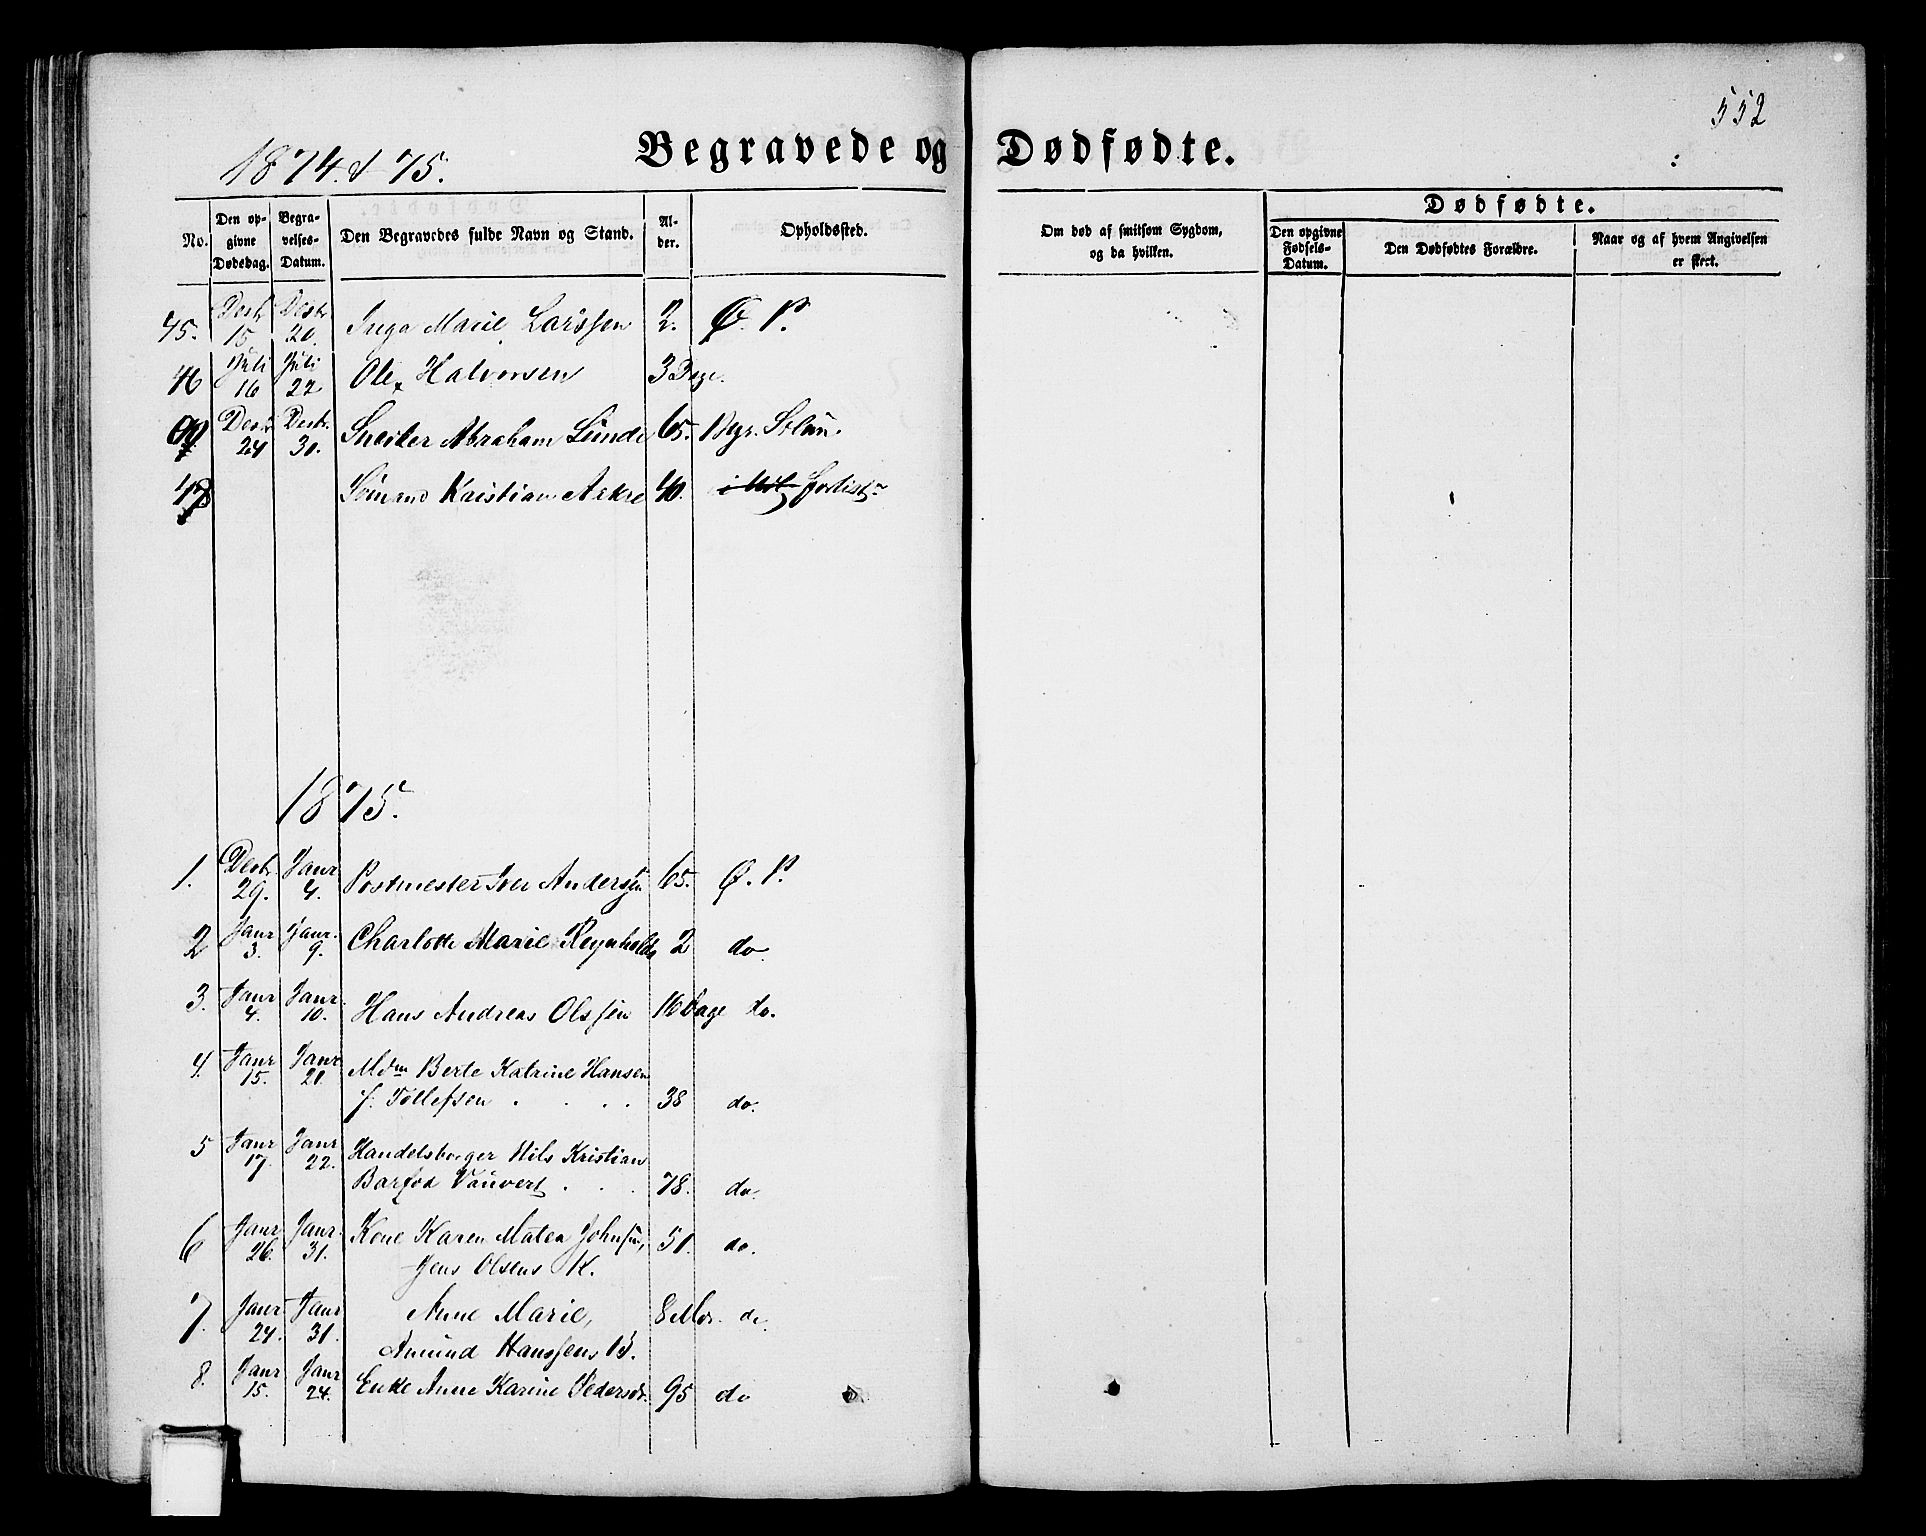 552
1874 & 75.
Begravede og Dødfødte.
No.
Den opgivne Dødsdag.
Begravelses-Datum.
Den Begravedes fulde Navn og Stand.
Alder.
Opholdssted.
Om død af smitsom Sygdom, og da hvilken.
Dødfødte.
Den opgivne Fødsels-Datum.
Den Dødfødtes Forældre.
Naar og af hvem Angivelsen er skeet.
45. Decbr 15 Decbr 20. Inga Marie Larssen 2. Ø. P.
46 Juli 16 Juli 22 Ole Halvorsen 3 Dage.
Decbr 24 Decbr. 30. Sneiker Abraham Lunde 65.
47 Sømand Kristian Aekre 40. forlist
1875.
1. Decbr. 29. Janr 4. Postmester Iver Andersen 65. Ø. P.
2 Janr 3. Janr. 9. Charlotte Marie Reynholds 2 do.
3. Janr 4. Janr. 10. Hans Andreas Olssen 16 Dage do.
4. Janr 15. Janr 21. Mdm Berte Katrine Hansen
f. Tollefsen . . . . 38 do.
5 Janr 17. Janr 22. Handelsborger Nils Kristian
Barfod Vauvert . . . 78. do.
6 Janr 26. Janr. 31. Kone Karen Matea Johnsen,
Jens Olsens K. 51. do.
7. Janr 24. Janr 31. Anne Marie, 8 Mdr. do.
Amund Hanssens B.
8. Janr 15. Janr 24. Enke Anne Karine Pedersdr. 95 do